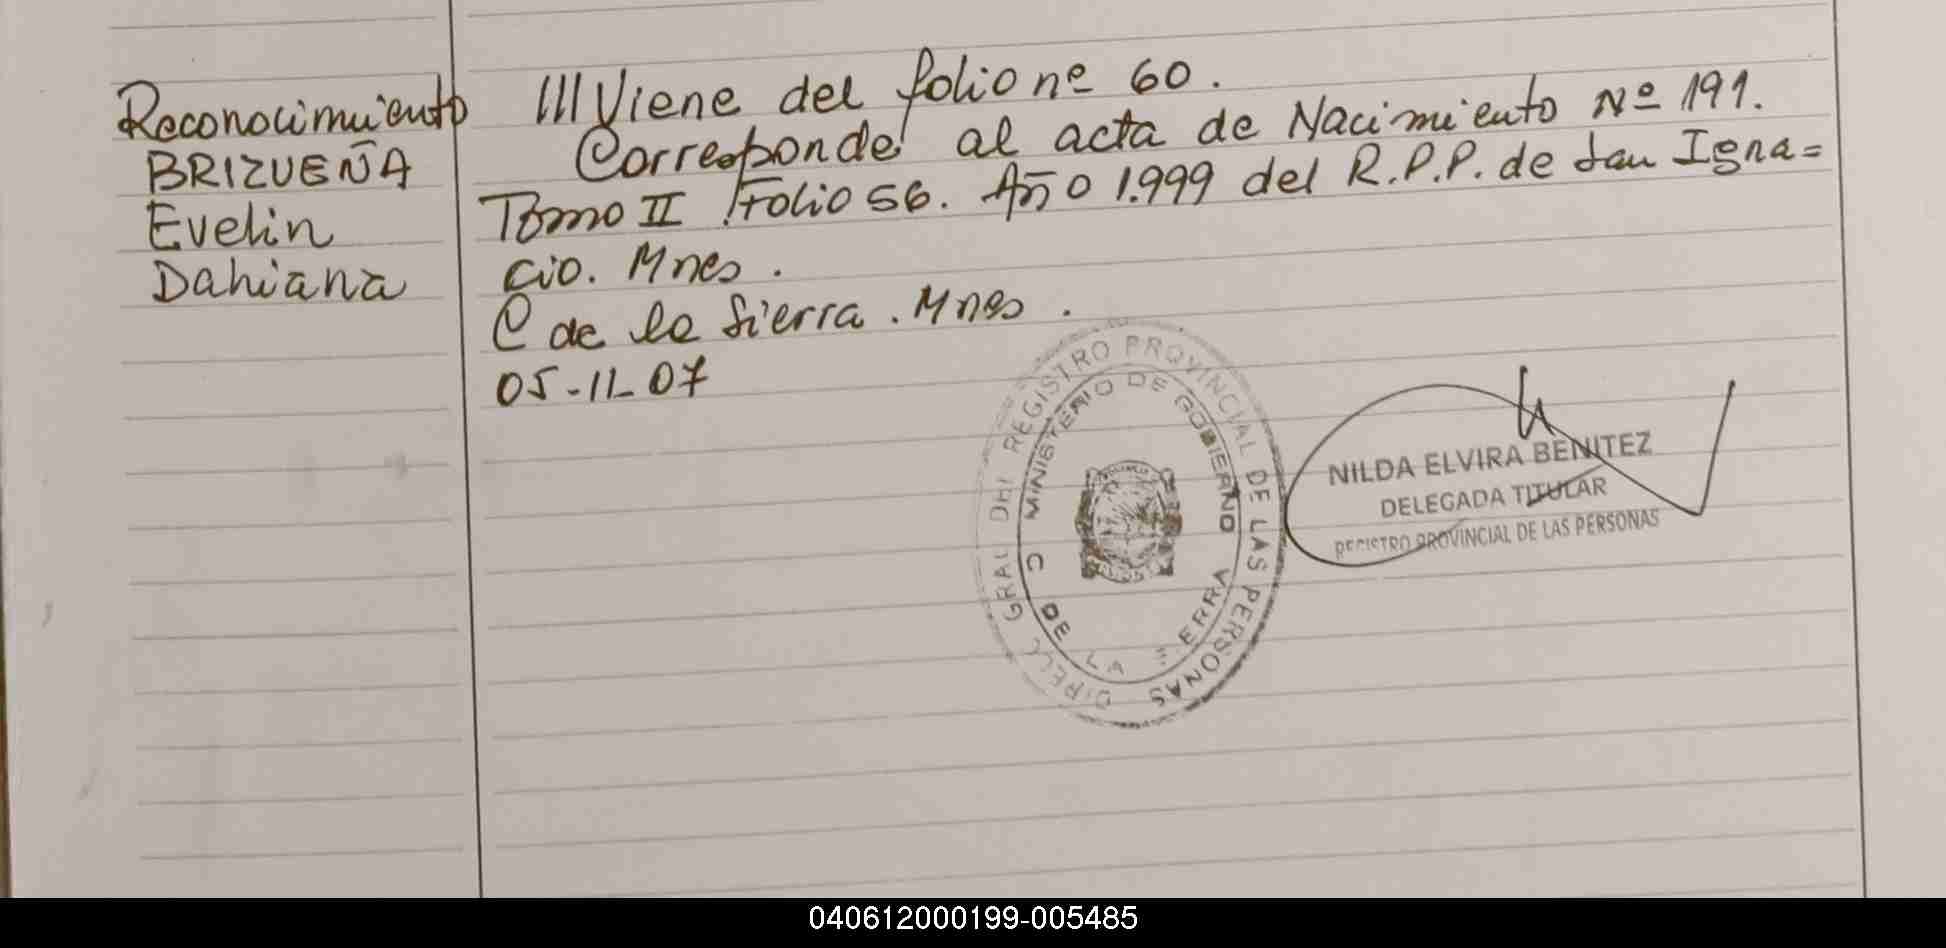 Reconocimiento
BRIZUEÑA
Evelin
Dahiana
III Viene del folio nº 60.
Corresponde al acta de Nacimiento Nº 191.
Tomo II Folio 56. Año 1.999 del R.P.P. de San Igna=
cio. Mnes.
C de la Sierra. Mnes.
05-11-07
DIRECC GRAL DEL REGISTRO PROVINCIAL DE LAS PERSONAS
MINISTERIO DE GOBIERNO
C DE LA SIERRA
NILDA ELVIRA BENITEZ
DELEGADA TITULAR
REGISTRO PROVINCIAL DE LAS PERSONAS
040612000199-005485